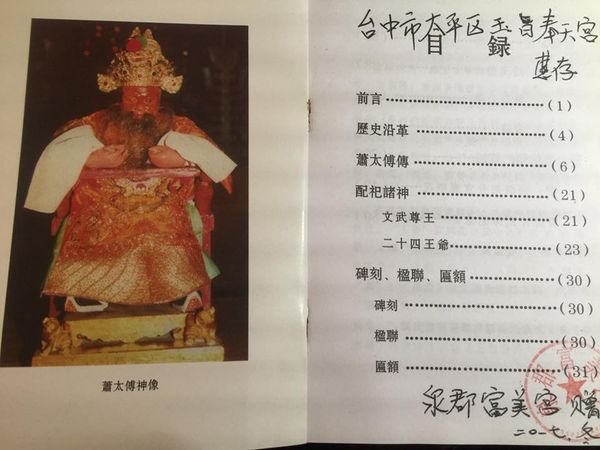 蕭太傅神像
台中市太平区玉皇奉天宫
惠存
目錄
前言……………………(1)
歷史沿革………………(4)
蕭太傅傳………………(6)
配祀諸神………………(21)
文武尊王………………(21)
二十四王爺……………(23)
碑刻、楹聯、匾額……(30)
碑刻……………………(30)
楹聯……………………(30)
匾額……………………(31)
泉郡富美宫 赠
二〇一七.冬